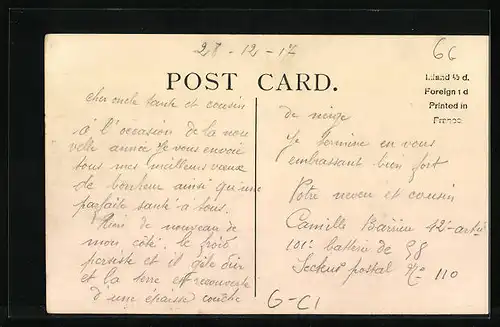 28-12-17
66
POST CARD.
Inland ½ d.
Foreign 1 d
Printed in
France
cher oncle tante et cousin
à l'occasion de la nou
velle année Je vous envoie
tous mes meilleurs vœux
de bonheur ainsi qu'une
parfaite santé à tous.
Rien de nouveau de
mon côté, le froid
persiste et il gèle dur
et la terre est recouverte
d'une épaisse couche
de neige
Je termine en vous
embrassant bien fort
Votre neveu et cousin
Camille 42e
101e batterie de 58
Secteur postal No 110
G-C1